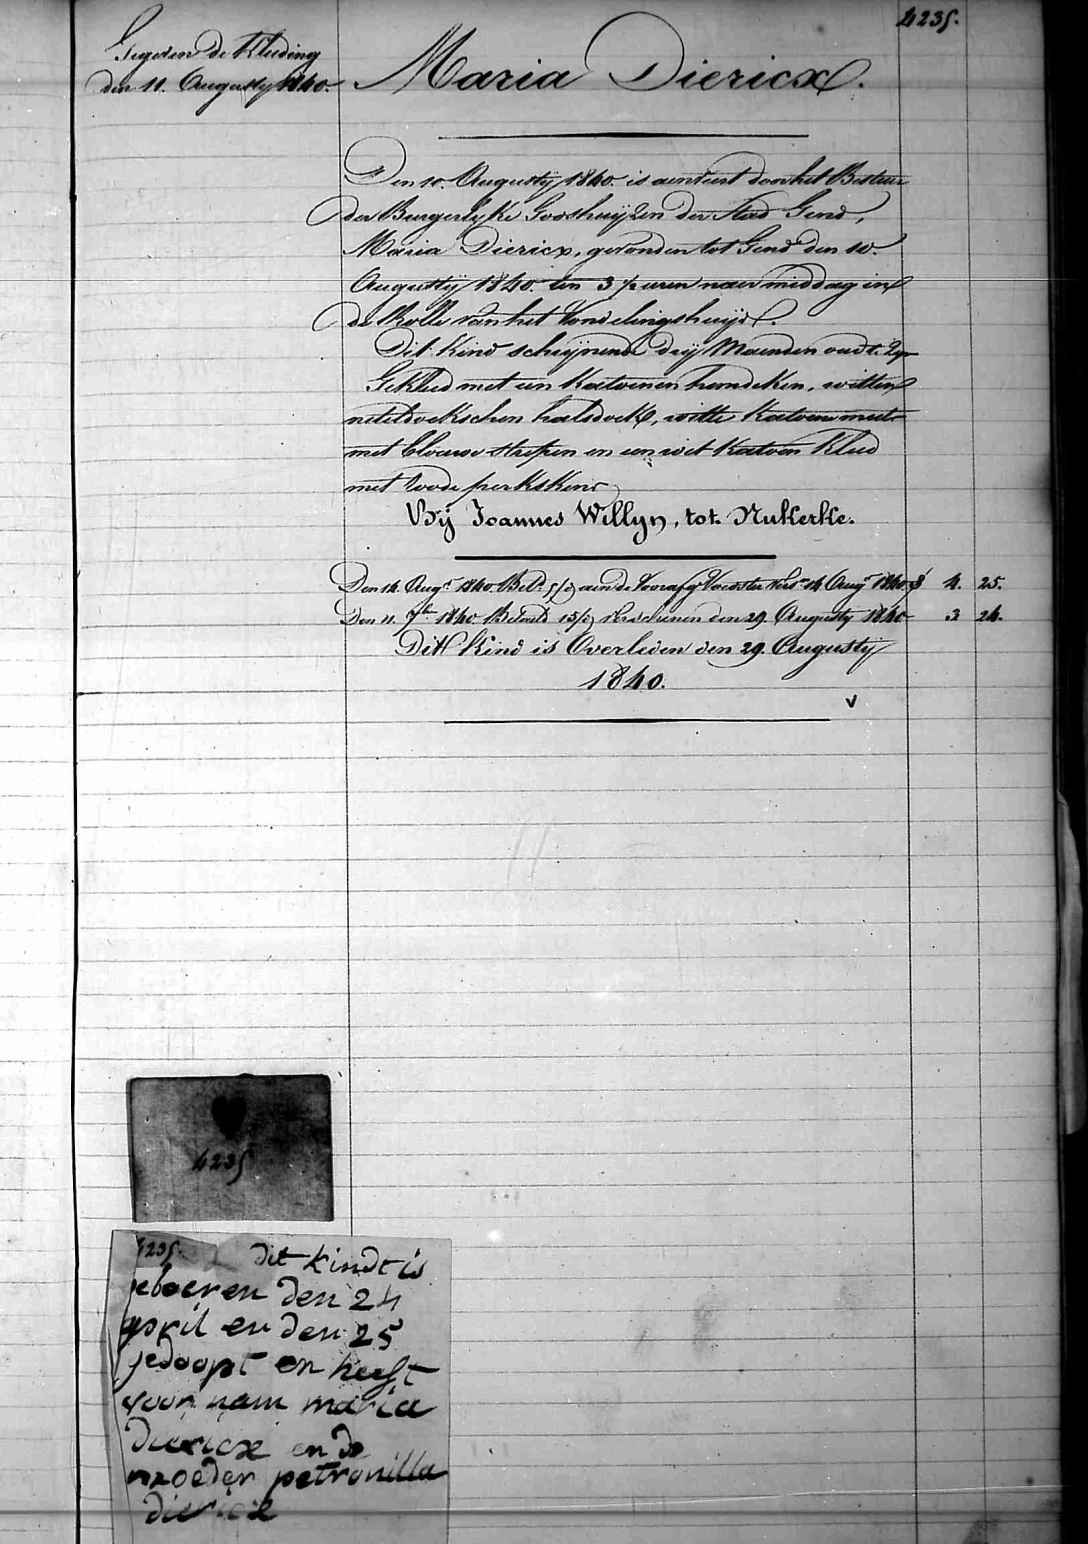 4235.
Gegeven de Kleeding
den 11. Augusty 1840.
Maria Diericx.
Den 10. Augusty 1840. is aenveird door het Bestuer
der Burgerlyke Godshuyzen der Stad Gend,
Maria Diericx, gevonden tot Gend den 10.
Augusty 1840. ten 3 1/2 uren naer middag in
de Rolle van het Vondelingshuys.
Dit Kind schynende dry Maenden oudt. Zyn
Gekleed met een Katoenen hemdeken, witten
neteldoekschen halsdoek, witte Katoene muts
met blauwe strepen en een wit Katoen Kleed
met roode perkskens
By Joannes Willyn, tot Nukerke.
Den 14. Augt. 1840. Bet. aen de Voorsten 14 Augt. 1840. 4. 25.
Den 11. 7b. 1840. Betaeld 15/d verschenen den 29. Augusty 1840 3 24.
Dit Kind is Overleden den 29. Augusty
1840.
v
4235
4235. dit kindt is
geboeren den 24
april en den 25
gedoopt en heeft
voor nam maria
diericx en de
moeder petronilla
diericx